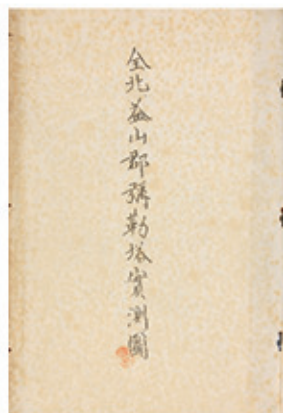 全北益山郡彌勒塔實測圖